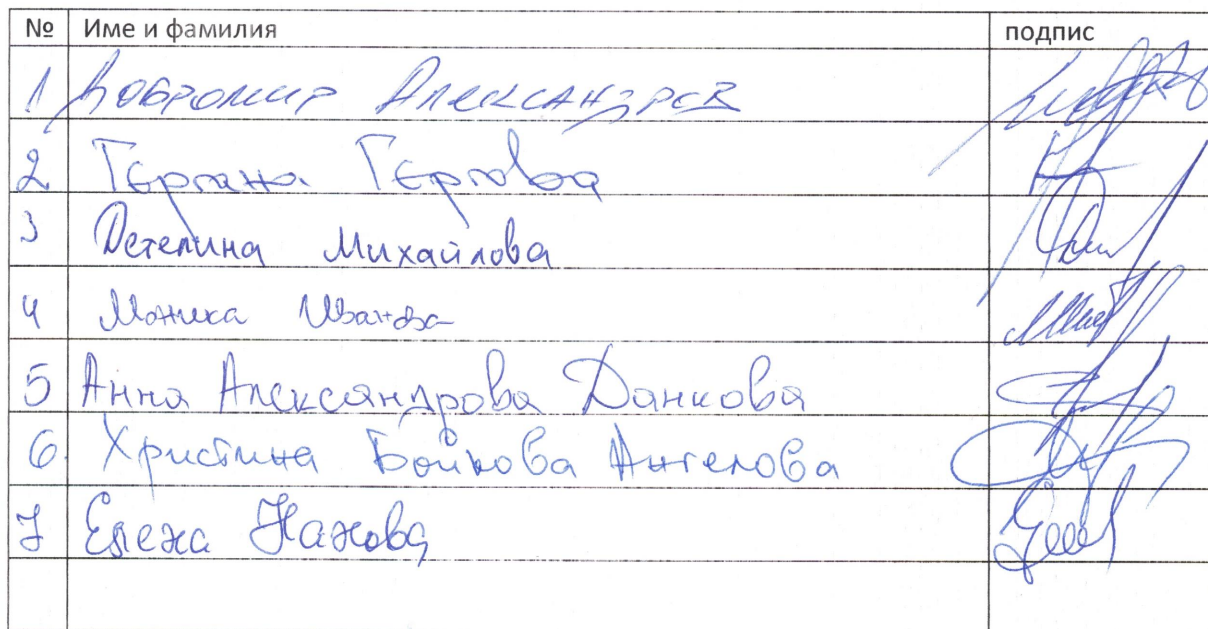 № Име и фамилия подпис
1 Добромир Александров
2 Гергана Гергова
3 Детелина Михайлова
4 Моника Иванова
5 Анна Александрова Данкова
6 Христина Бойкова Ангелова
7 Елена Нанова